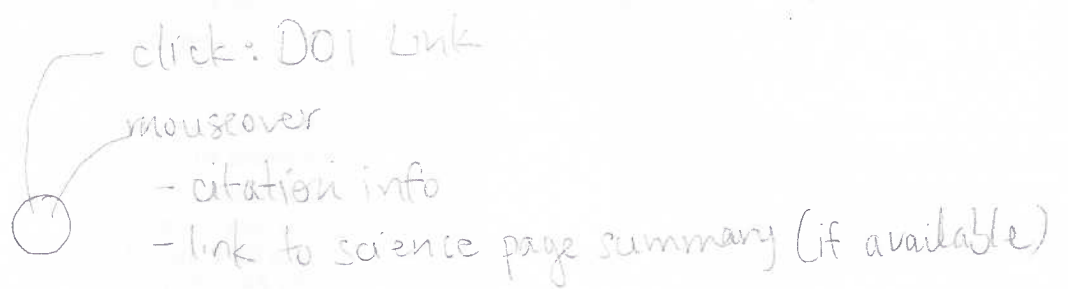 click: DOI Link
mouseover
- citation info
- link to science page summary (if available)